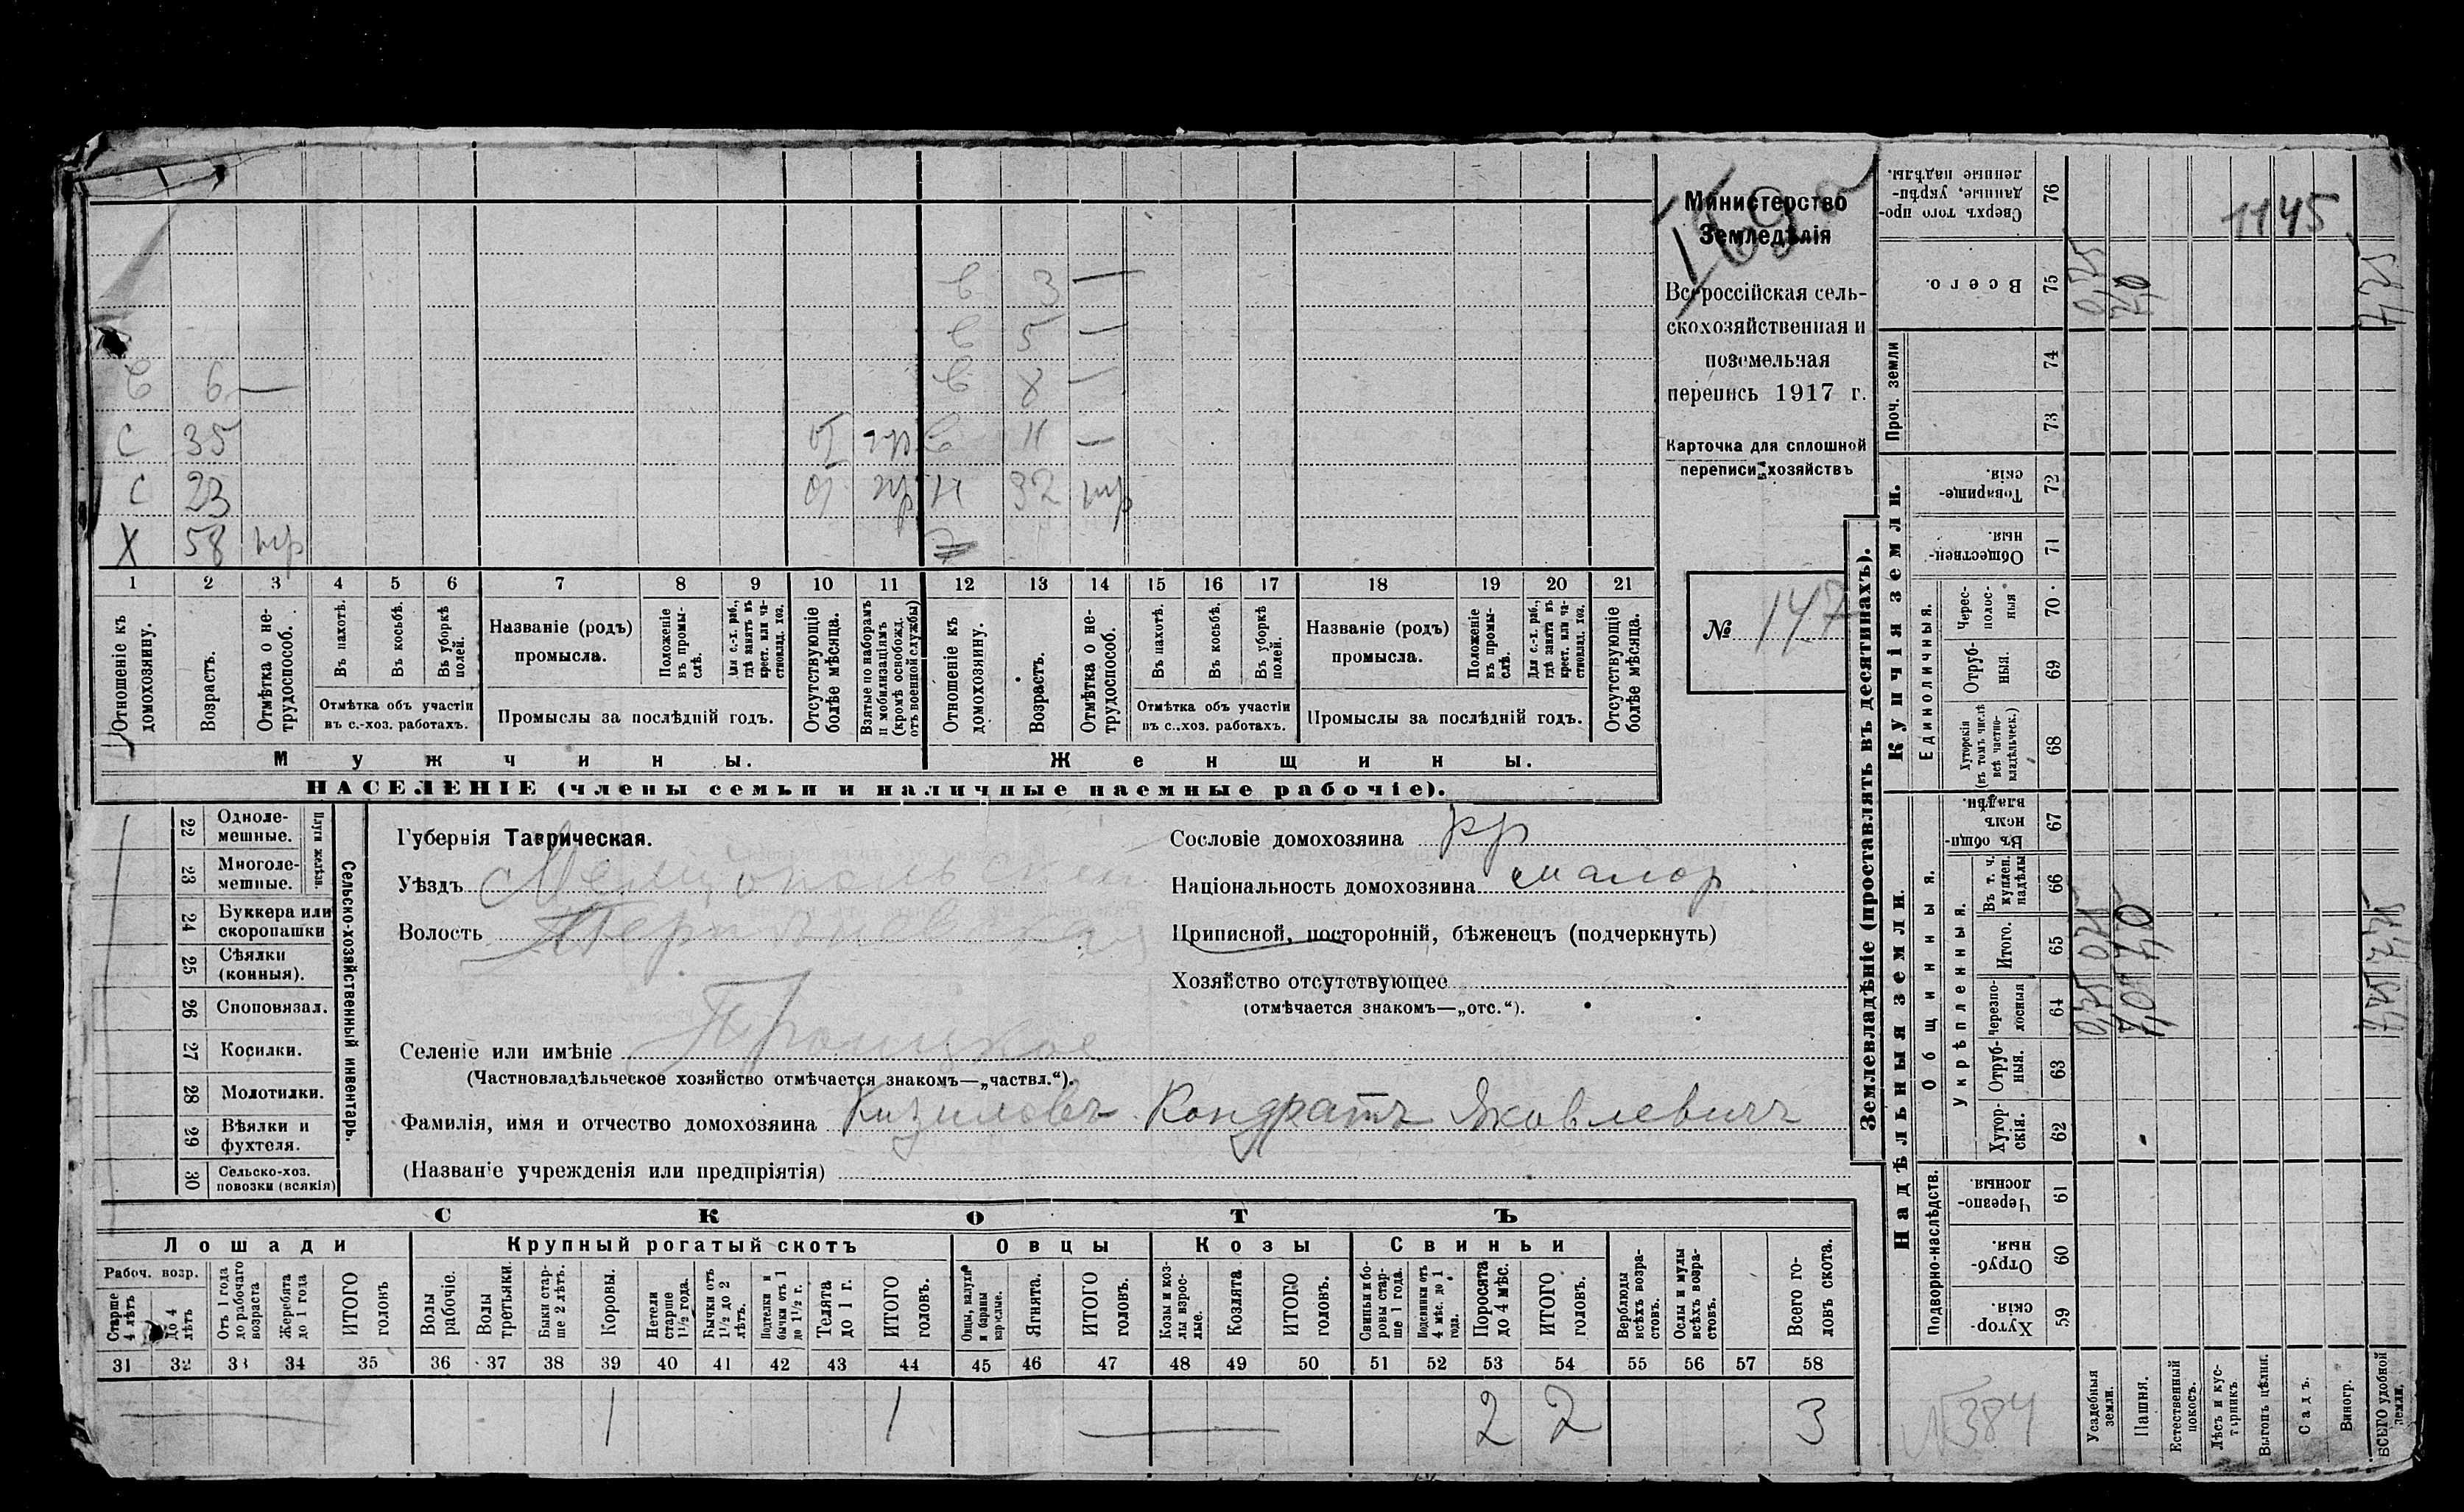 Министерство
Земледѣлія
Всероссійская сель-
скохозяйственная и
поземельная
перепись 1917 г.
Карточка для сплошной
переписи хозяйствъ
№ 147
в 3 —
в 5 —
в 6 — в 8 —
с 35 от пр в 11 —
с 23 от пр н 32 нтр
х 58 нтр
1 2 3 4 5 6 7 8 9 10 11 12 13 14 15 16 17 18 19 20 21
Отношеніе къ домохозяину.
Возрастъ.
Отмѣтка о не-трудоспособ.
Въ пахотѣ.
Въ косьбѣ.
Въ уборкѣ полей.
Отмѣтка объ участіи въ с.-хоз. работахъ.
Названіе (родъ) промысла.
Положеніе въ промы-слѣ.
Для с.-х. раб., гдѣ занятъ въ крест. или ча-стновлад. хоз.
Промыслы за послѣдній годъ.
Отсутствующіе болѣе мѣсяца.
Взятые по наборамъ и мобилизаціямъ (кромѣ освобожд. отъ военной службы)
Отношеніе къ домохозяину.
Возрастъ.
Отмѣтка о не-трудоспособ.
Въ пахотѣ.
Въ косьбѣ.
Въ уборкѣ полей.
Отмѣтка объ участіи въ с.-хоз. работахъ.
Названіе (родъ) промысла.
Положеніе въ промы-слѣ.
Для с.-х. раб., гдѣ занята въ крест. или ча-стновлад. хоз.
Промыслы за послѣдній годъ.
Отсутствующіе болѣе мѣсяца.
Мужчины. Женщины.
НАСЕЛЕНІЕ (члены семьи и наличные наемные рабочіе).
22 Одноле-мешные.
23 Многоле-мешные.
Плуги желѣзн.
24 Буккера или скоропашки
25 Сѣялки (конныя).
26 Сноповязал.
27 Косилки.
28 Молотилки.
29 Вѣялки и фухтеля.
30 Сельско-хоз. повозки (всякія)
Сельско-хозяйственный инвентарь.
Губернія Таврическая.
Уѣздъ Мелитопольскій
Волость
Селеніе или имѣніе Троицкое
(Частновладѣльческое хозяйство отмѣчается знакомъ—„частвл.“).
Фамилія, имя и отчество домохозяина Кизиловъ Кондратъ Яковлевичъ
(Названіе учрежденія или предпріятія)
Сословіе домохозяина кр
Національность домохозяина малор
Приписной, посторонній, бѣженецъ (подчеркнуть)
Хозяйство отсутствующее
(отмѣчается знакомъ—„отс.“).
СКОТЪ
Лошади Крупный рогатый скотъ Овцы Козы Свиньи
Рабоч. возр.
Старше 4 лѣтъ
до 4 лѣтъ
Отъ 1 года до рабочаго возраста
Жеребята до 1 года
ИТОГО головъ
Волы рабочіе.
Волы третьяки.
Быки стар-ше 2 лѣтъ.
Коровы.
Нетели старше 1½ года.
Бычки отъ 1½ до 2 лѣтъ.
Подтелки и бычки отъ 1 до 1½ г.
Телята до 1 г.
ИТОГО головъ.
Овцы, валухи и бараны взрослые.
Ягнята.
ИТОГО головъ.
Козы и коз-лы взрос-лые.
Козлята
ИТОГО головъ.
Свиньи и бо-ровы стар-ше 1 года.
Подсвинки отъ 4 мѣс. до 1 года.
Поросята до 4 мѣс.
ИТОГО головъ.
Верблюды всѣхъ возра-стовъ.
Ослы и мулы всѣхъ возра-стовъ.
Всего го-ловъ скота.
31 32 33 34 35 36 37 38 39 40 41 42 43 44 45 46 47 48 49 50 51 52 53 54 55 56 57 58
1 1 2 2 3
Землевладѣніе (проставлять въ десятинахъ).
Надѣльныя земли. Купчія земли.
Проч. земли
Подворно-наслѣдств.
Общинныя.
Укрѣпленныя.
Единоличныя.
Хутор-скія. 59
Отруб-ныя. 60
Черезпо-лосныя 61
Хутор-скія. 62
Отруб-ныя. 63
Черезпо-лосныя 64
Итого. 65
Въ т. ч. куплен. надѣлы 66
Въ общи-номъ владѣн. 67
Хуторскія (въ томъ числѣ всѣ частно-владѣльческ.) 68
Отруб-ныя. 69
Черес-полос-ныя 70
Обществен-ныя. 71
Товарище-скія. 72
73
74
Всего. 75
Сверхъ того про-данные, укрѣп-ленные надѣлы. 76
1145
№384
Усадебныя земли.
Пашня.
Естественный покосъ.
Лѣсъ и кус-тарникъ.
Выгонъ цѣлин.
Садъ.
Виногр.
ВСЕГО удобной земли.